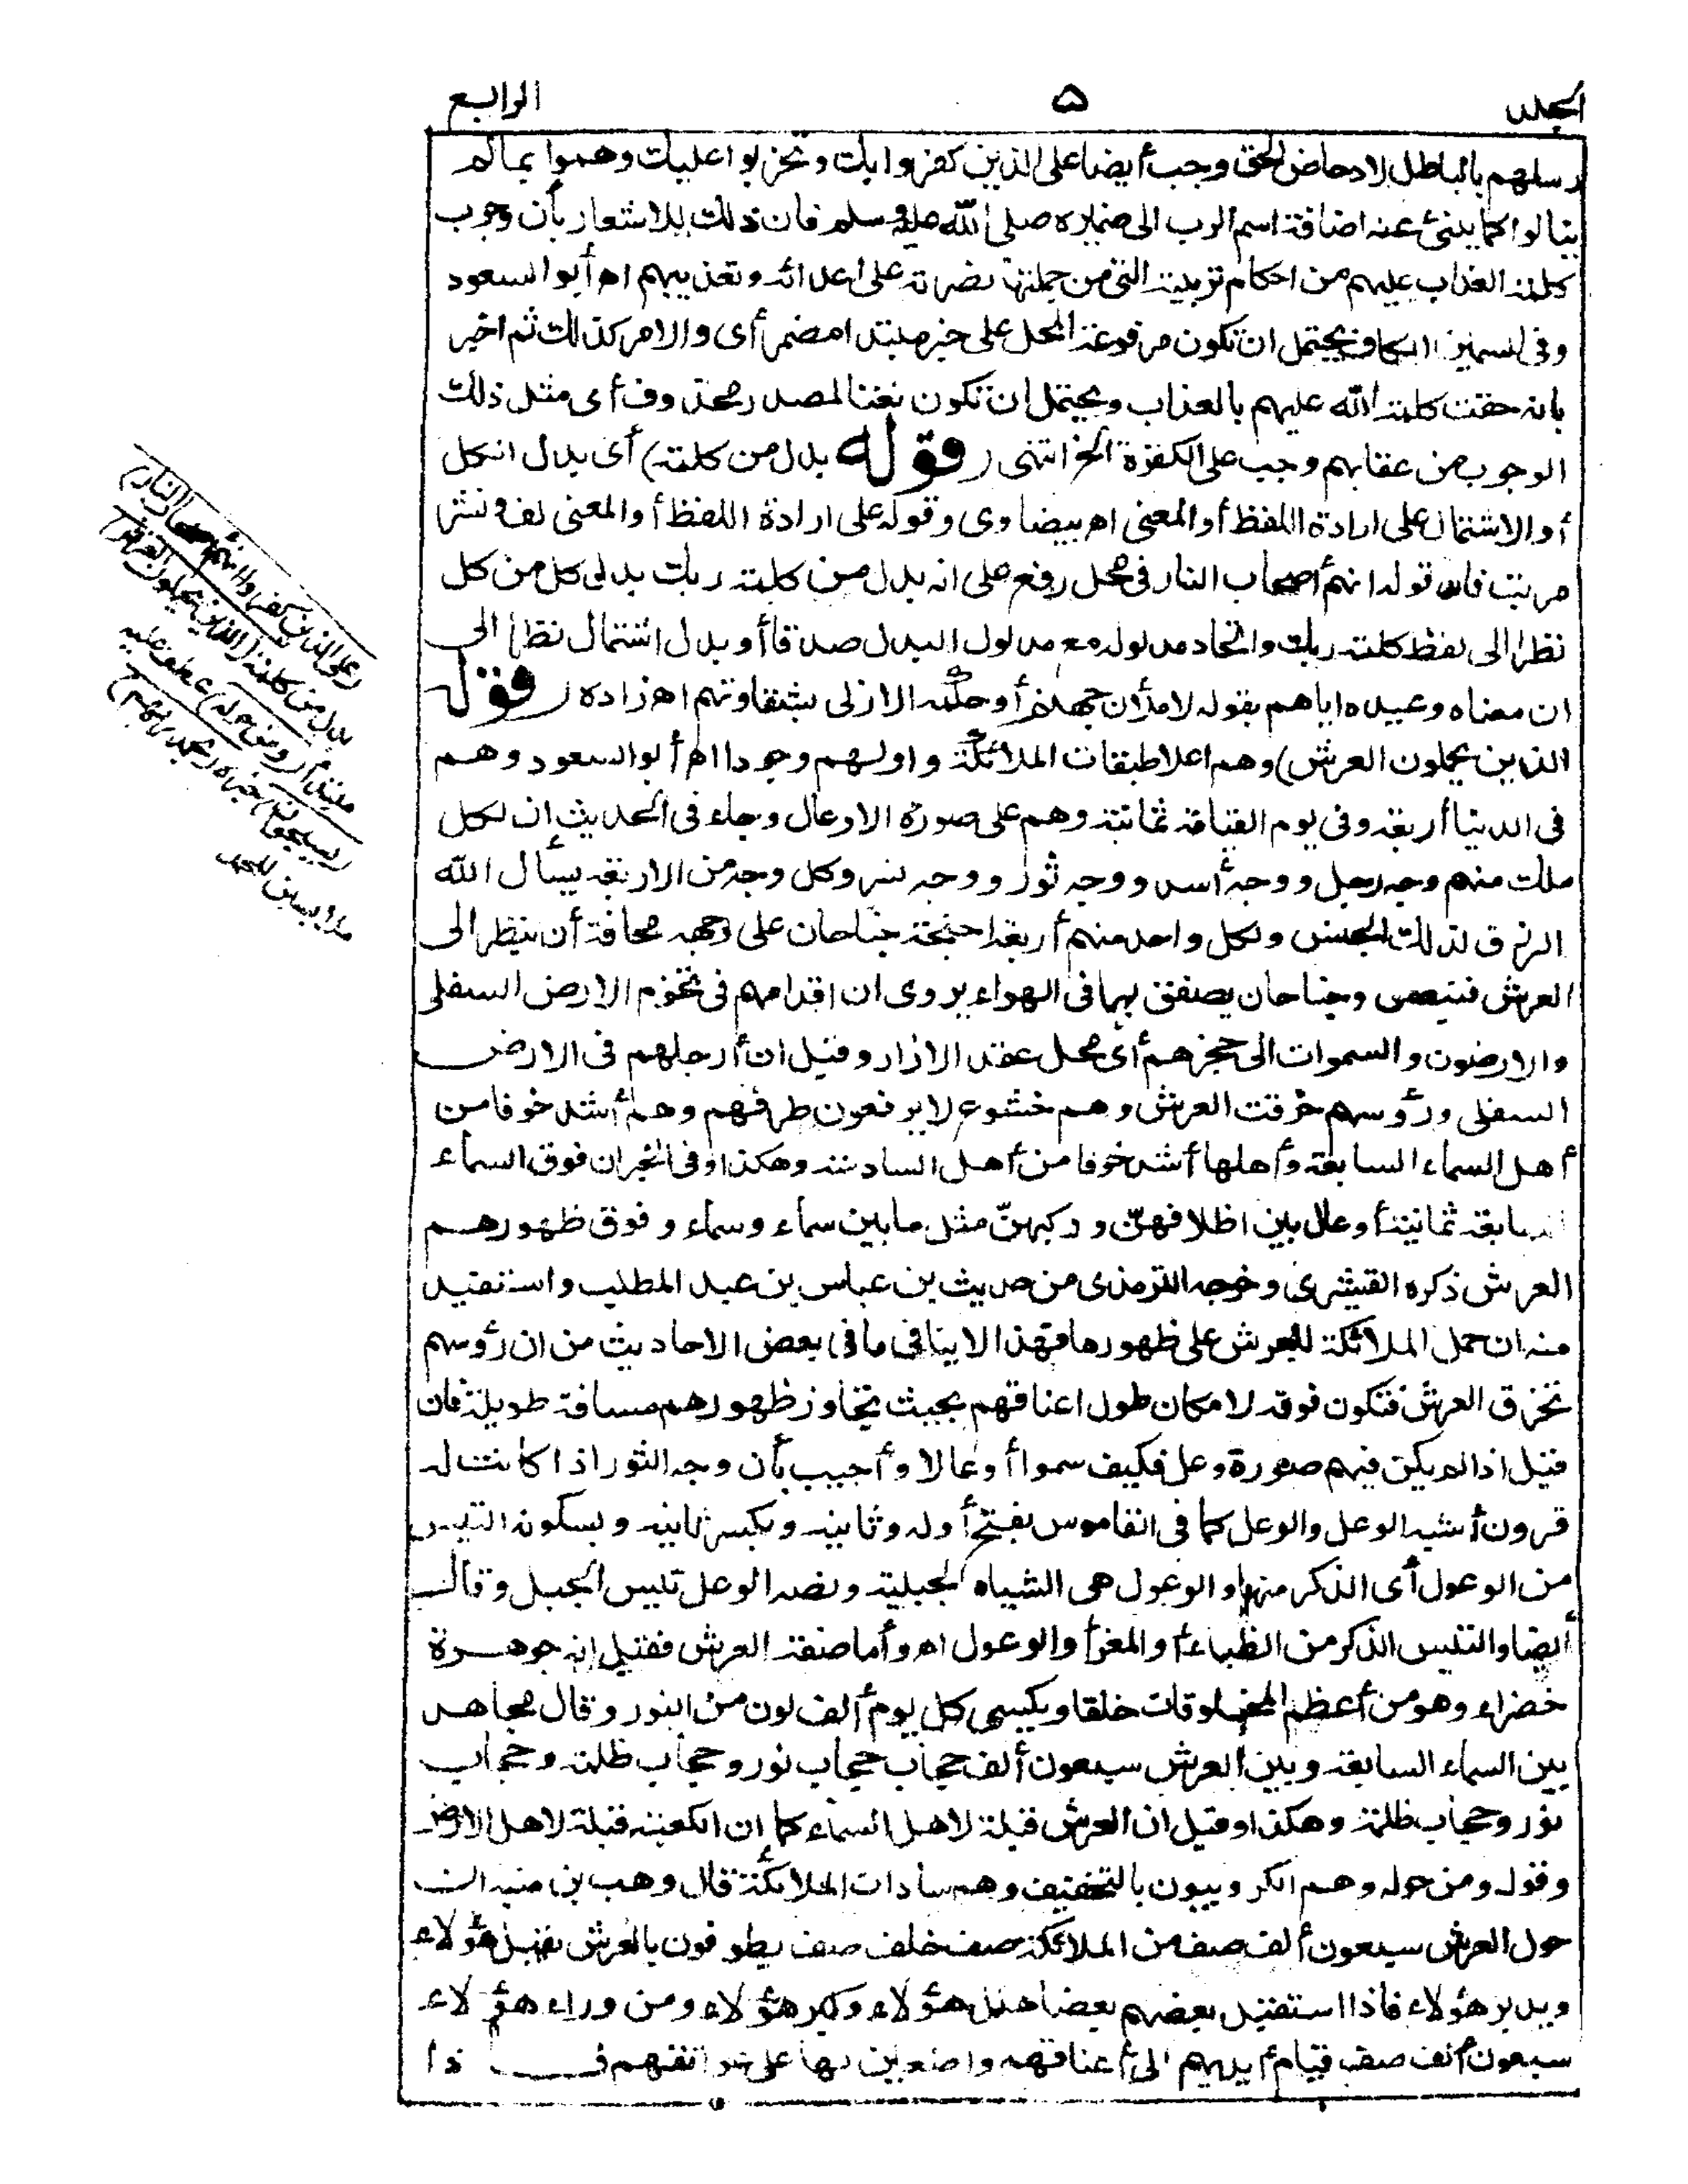 الجلد ۵ الرابع
رسلهم بالباطل لادحاض الحق وجب أيضا على الذين كفروا بك وتحزبوا عليك وهموا بما لم
ينالوا كما ينبئ عنه اضافة اسم الرب الى ضميره صلى الله عليه وسلم فان ذلك للاشعار بأن وجوب
كلمة العذاب عليهم من احكام تربيته التى من جملتها نصرته على اعدائه وتعذيبهم اه أبو السعود
وفى السمين الكاف يحتمل ان تكون مرفوعة المحل على خبر مبتدا مضمر أى والامر كذلك ثم اخبر
بانه حقت كلمة الله عليهم بالعذاب ويحتمل ان تكون نعتا لمصدر محذوف أى مثل ذلك
الوجوب من عقابهم وجب على الكفرة الخ انتهى (قوله بدل من كلمة) أى بدل الكل
أو الاشتمال على ارادة اللفظ أو المعنى اه بيضاوى وقوله على ارادة اللفظ أو المعنى لف ونشر
مرتب فان قوله انهم أصحاب النار فى محل رفع على انه بدل من كلمة ربك بدل كل من كل
نظرا الى لفظ كلمة ربك واتحاد مدلوله مع مدلول البدل صدقا أو بدل اشتمال نظرا الى
ان معناه وعيده اياهم بقوله لاملأن جهنم أو حكمه الازلى بشقاوتهم اه زاده (قوله
الذين يحملون العرش) وهم اعلا طبقات الملائكة واولهم وجودا اه أبو السعود وهم
فى الدنيا أربعة وفى يوم القيامة ثمانية وهم على صورة الاوعال وجاء فى الحديث ان لكل
ملك منهم وجه رجل ووجه أسد ووجه ثور ووجه نسر وكل وجه من الاربعة يسأل الله
الرزق لذلك الجنس ولكل واحد منهم أربعة اجنحة جناحان على وجهه مخافة أن ينظر الى
العرش فيصعق وجناحان يصفق بهما فى الهواء يروى ان اقدامهم فى تخوم الارض السفلى
والارضون والسموات الى حجزهم أى محل عقد الازار وقيل ان أرجلهم فى الارض
السفلى ورؤسهم خرقت العرش وهم خشوع لا يرفعون طرفهم وهم أشد خوفا من
أهل السماء السابعة وأهلها أشد خوفا من أهل السادسة وهكذا وفى الخبر ان فوق السماء
السابعة ثمانية أوعال بين اظلافهن وركبهن مثل ما بين سماء وسماء وفوق ظهورهم
العرش ذكره القشيرى وخرجه الترمذى من حديث بن عباس بن عبد المطلب واستفيد
منه ان حمل الملائكة للعرش على ظهورها فهذا لا ينافى ما فى بعض الاحاديث من ان رؤسهم
تخرق العرش فتكون فوقه لامكان طول اعناقهم بحيث تجاوز ظهورهم مسافة طويلة فان
قيل اذا لم يكن فيهم صورة وعل فكيف سموا أوعالا وأجيب بأن وجه الثور اذا كانت له
قرون أشبه الوعل والوعل كما فى القاموس بفتح أوله وثانيه وبكسر ثانيه وبسكونه التيس
من الوعول أى الذكر منها والوعول هى الشياه الجبلية ونصه الوعل تيس الجبل وقال
أيضا والتيس الذكر من الظباء أو المعز أو الوعول اه وأما صفة العرش فقيل انه جوهرة
خضراء وهو من أعظم المخلوقات خلقا ويكسى كل يوم ألف لون من النور وقال مجاهد
بين السماء السابعة وبين العرش سبعون ألف حجاب حجاب نور وحجاب ظلمة وحجاب
نور وحجاب ظلمة وهكذا وقيل ان العرش قبلة لاهل السماء كما ان الكعبة قبلة لاهل الارض
وقوله ومن حوله وهم الكروبيون بالتخفيف وهم سادات الملائكة قال وهب بن منبه ان
حول العرش سبعون ألف صف من الملائكة صف خلف صف يطوفون بالعرش يقبل هؤلاء
ويدبر هؤلاء فاذا استقبل بعضهم بعضا هلل هؤلاء وكبر هؤلاء ومن وراء هؤلاء
سبعون ألف صف قيام أيديهم الى أعناقهم واضعين لها على عواتقهم فـذا
(على الذين كفروا انهم أصحاب النار)
بدل من كلمة (الذين يحملون العرش)
مبتدأ (ومن حوله) عطف عليه
(يسبحون) خبره (بحمد ربهم)
ملابسين للحمد